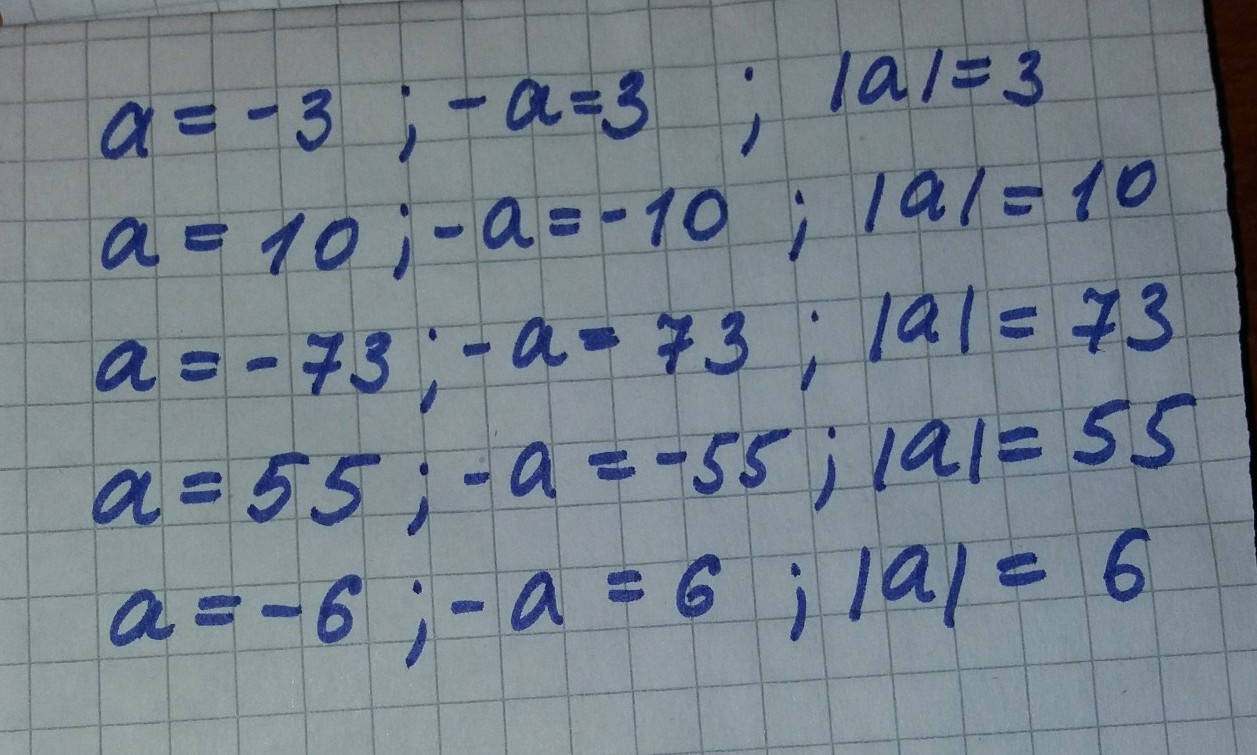 a = -3 ; -a = 3 ; |a| = 3
a = 10 ; -a = -10 ; |a| = 10
a = -73 ; -a = 73 ; |a| = 73
a = 55 ; -a = -55 ; |a| = 55
a = -6 ; -a = 6 ; |a| = 6